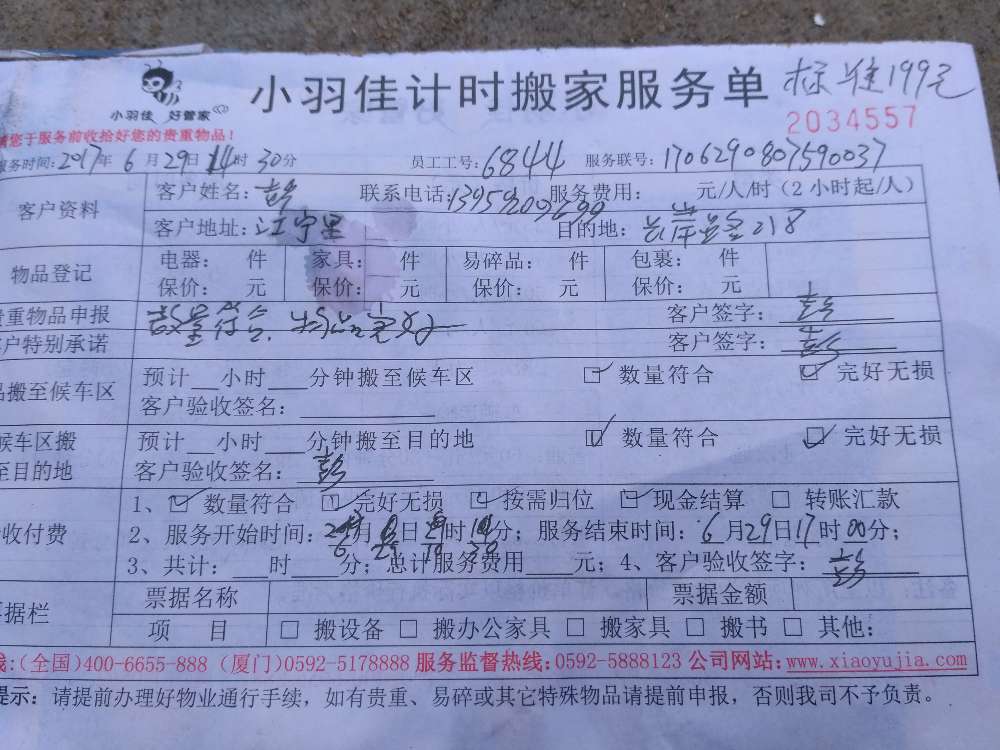 小羽佳 好管家
小羽佳计时搬家服务单 标准199元
2034557
您于服务前收拾好您的贵重物品！
服务时间：2017年6月29日14时30分 员工工号：6844 服务联号：1706290807590037
客户资料 客户姓名：彭 联系电话： 服务费用： 元/人/时（2小时起/人）
客户地址：江宁里 目的地： 218
物品登记 电器： 件 家具： 件 易碎品： 件 包裹： 件
保价： 元 保价： 元 保价： 元 保价： 元
贵重物品申报 数量符合. 客户签字：彭
户特别承诺 客户签字：彭
品搬至候车区 预计__小时___分钟搬至候车区 ☑ 数量符合 ☑ 完好无损
客户验收签名：
候车区搬 预计__小时___分钟搬至目的地 ☑ 数量符合 ☑ 完好无损
至目的地 客户验收签名：彭
收付费 1、☑ 数量符合 ☑ 完好无损 ☑ 按需归位 ☑ 现金结算 □ 转账汇款
2、服务开始时间： 月 日 时 分；服务结束时间：6月29日17时00分；
3、共计：___时____分；总计服务费用____元；4、客户验收签字：彭
票据栏 票据名称 票据金额
项 目 □ 搬设备 □ 搬办公家具 □ 搬家具 □ 搬书 □ 其他：
线：（全国）400-6655-888（厦门）0592-5178888 服务监督热线：0592-5888123 公司网站：www.xiaoyujia.com
提示：请提前办理好物业通行手续，如有贵重、易碎或其它特殊物品请提前申报，否则我司不予负责。